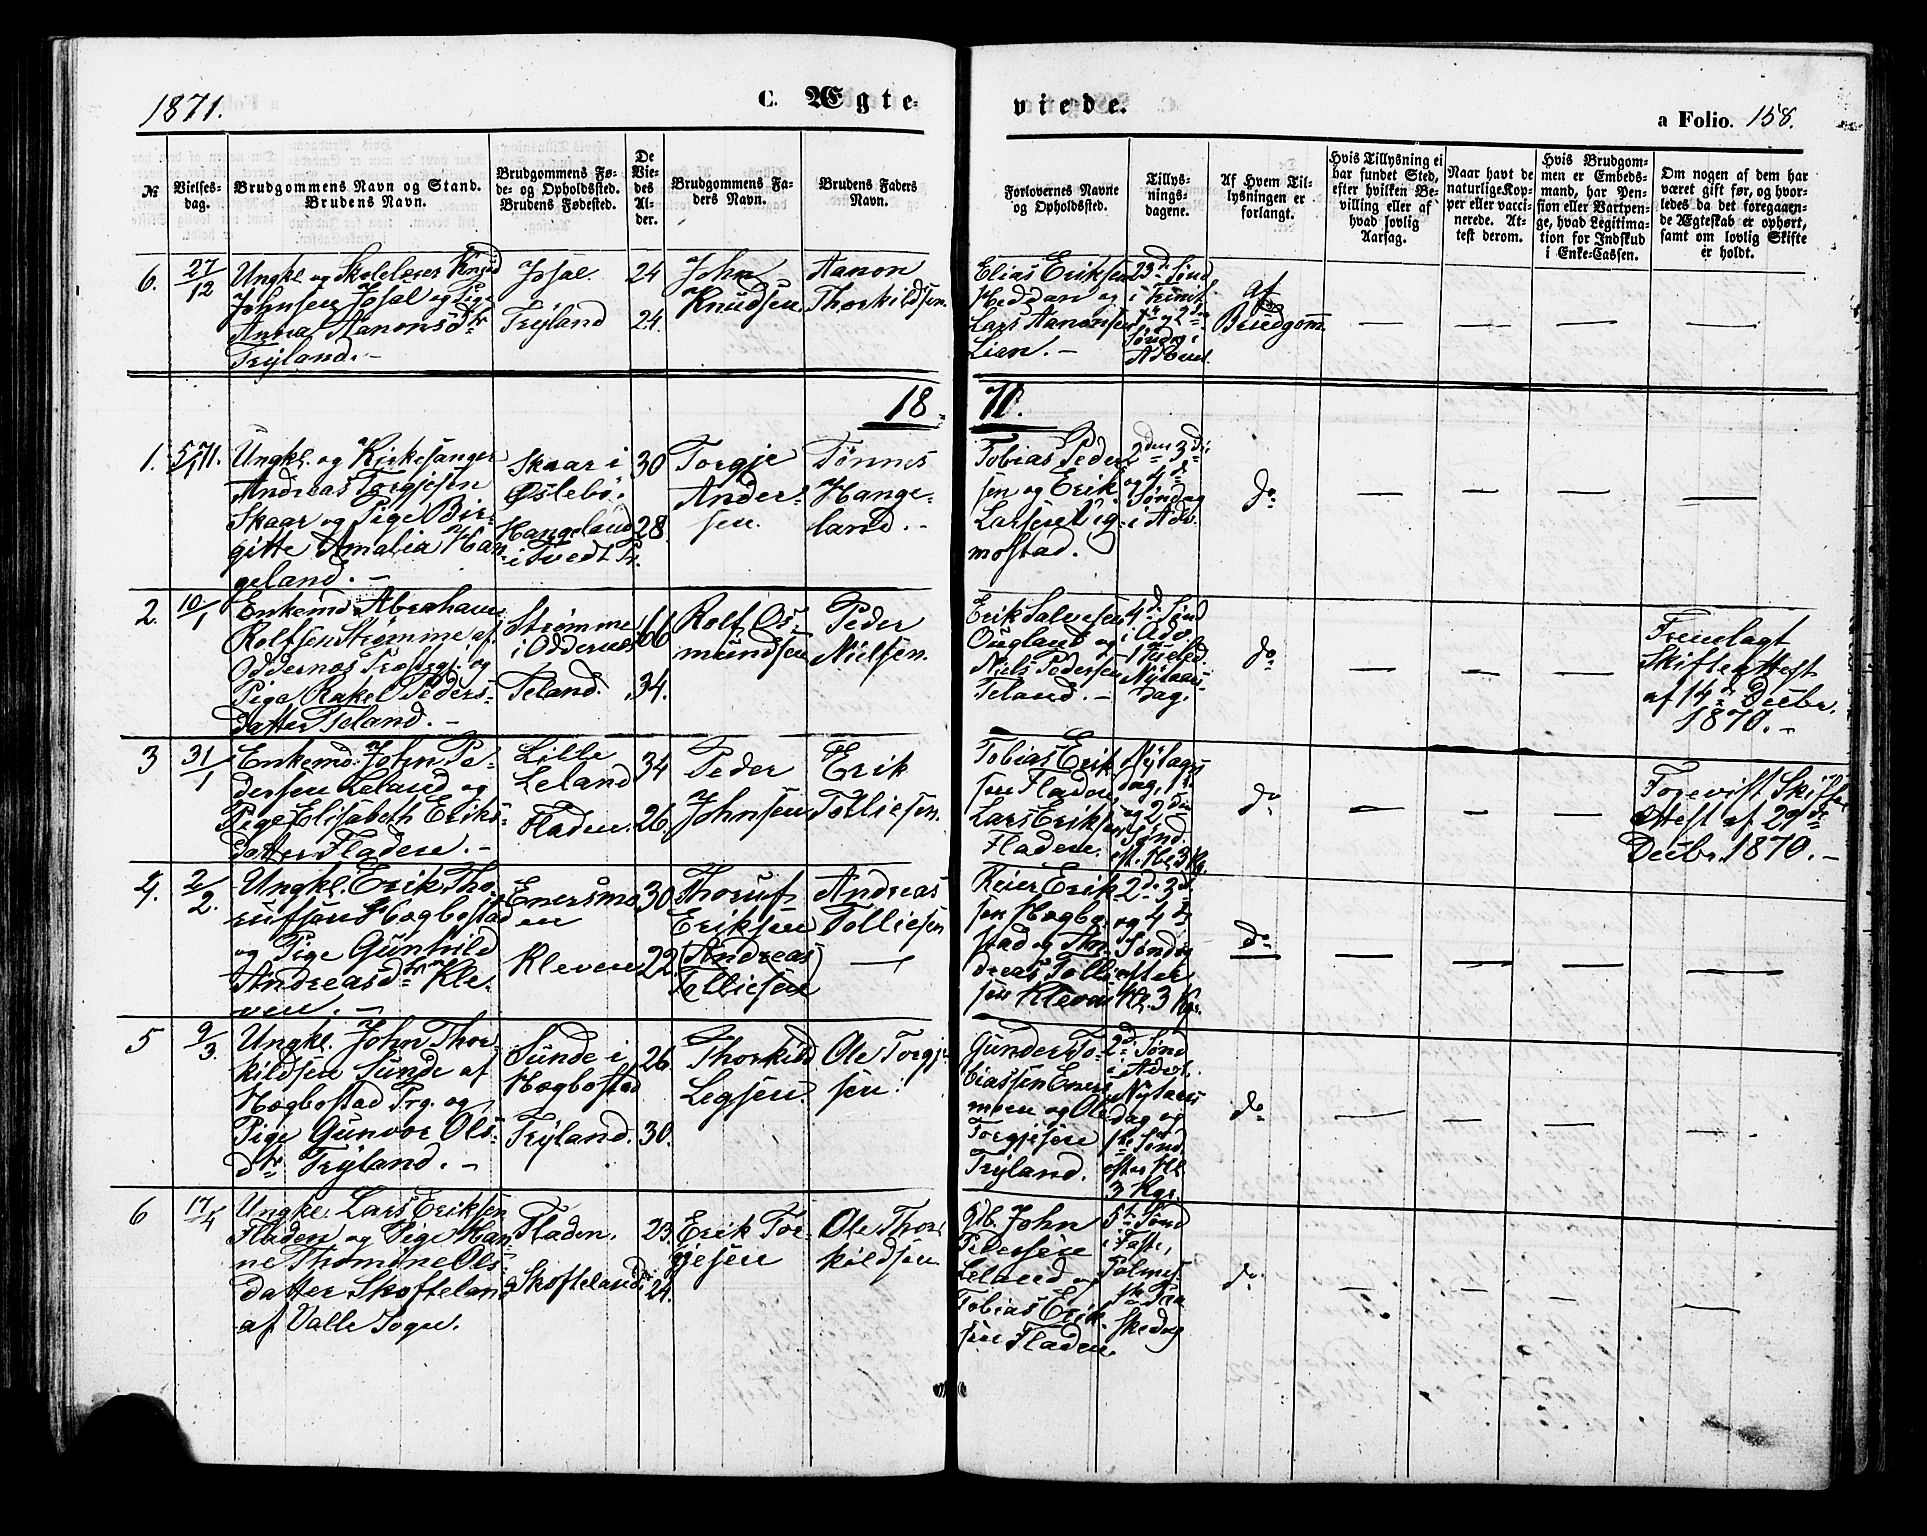 1871.
C. Ægte-
viede.
a Folio. 158.
№
Vielses-
dag.
Brudgommens Navn og Stand.
Brudens Navn.
Brudgommens Fø-
de- og Opholdssted.
Brudens Fødested.
De
Vie-
des
Al-
der.
Brudgommens Fa-
ders Navn.
Brudens Faders
Navn.
Forlovernes Navne
og Opholdssted.
Tillys-
nings-
dagene.
Af Hvem Til-
lysningen er
forlangt.
Hvis Tillysning ei
har fundet Sted,
efter hvilken Be-
villing eller af
hvad lovlig
Aarsag.
Naar havt de
naturlige Kop-
per eller vacci-
nerede. At-
test derom.
Hvis Brudgom-
men er Embeds-
mand, har Pen-
sion eller Vartpen-
ge, hvad Legitima-
tion for Indskud
i Enke-Cassen.
Om nogen af dem har
været gift før, og hvor-
ledes da det foregaaen-
de Ægteskab er ophørt,
samt om lovlig Skifte
er holdt.
6.
27/12
Ungkl. og Skolelærer Knud
Johnsen Josal og Pige
Anna Aanonsdtr
Tryland. -
Josal
Tryland
24
24.
John
Knudsen.
Aanon
Thorkildsen.
Elias Eriksen
Heddan og
Lars Aanonsen
Lien. -
23d. Sønd
i Trinit.
1ste og 2den
Søndg i
Advent.
Af
Brudgom.
18
71.
1.
5/1 71.
Ungkl. og Kirkesanger
Andreas Torgjesen
Skaar og Pige Bir-
gitte Amalia Han-
geland. -
Skaar i
Øslebø.
Hangeland
i Tvedt Pr.
30
28.
Torgje
Ander-
sen.
Tønnes
Hange-
land. -
Tobias Peder-
sen og Erik
Larsen Vig-
mostad.
2den 3di
og 4de
Søndag
i Adv.
do
2.
10/1
Enkemd. Abraham
Rolfsen Strømme af
Oddernes Præstegj. og
Pige Rakel Peders-
datter Teland. -
Strømme
i Oddernes
Teland.
66
34.
Rolf Os-
mundsen
Peder
Nielsen.
Erik Salvesen
Ougland og
Niels Pedersen
Teland. -
4d. Sønd
i Adv.
Nytaars-
dag.
do
Fremlagt
Skifteattest
af 14de Decbr.
1870. -
3
31/1
Enkemd. John Pe-
dersen Leland og
Pige Elisabeth Eriks-
datter Fladen. -
Lille
Leland
Fladen.
34
26.
Peder
Johnsen
Erik
Tolliesen.
Tobias Erik-
sen Fladen,
Lars Eriksen
Fladen.
Nytaars
dag, 1ste
og 2den
Sønd.
eft. Hl. 3 Kg.
do
Forevist Skifte
Attest af 29de
Decbr. 1870. -
4.
2/2.
Ungkl. Erik Tho-
rufsen Hægbostad
og Pige Gunhild
Andreasdtr Kle-
ven. -
Enersmo
en
Kleven
30
22.
Thoruf
Eriksen
(Andreas
Tolliesen)
Andreas
Tolliesen
Reier Erik-
sen Hægbo-
stad og An-
dreas Tolli-
sen Kleven
2de 3di
og 4de
Søndag
efter
Hl. 3 Kgr.
do
5
9/3.
Ungkl. John Thor-
kildsen Sunde af
Hægbostad Prg. og
Pige Gunvor Ols-
dtr Tryland. -
Sunde i
Hægbostad
Tryland.
26.
30.
Thorkild
Legsen.
Ole Torgje
sen.
Gunder To-
biassen Eners
moen og Ole
Torgjesen
Tryland.
2d. Sønd
i Advt.
Nytaars
dag og
1ste Sønd
efter Hl
3 Kgr.
do
6
17/4
Ungkl. Lars Eriksen
Fladen og Pige Han-
ne Thomine Ols-
datter Skofteland
af Valle Sogn.
Fladen.
Skofteland
23.
24.
Erik Tor-
gjesen
Ole Thor-
kildsen
John
Pedersen
Leland og
Tobias Erik-
sen Fladen.
5te Sønd
i Faste,
Palmes.
Paa
skedag
do.